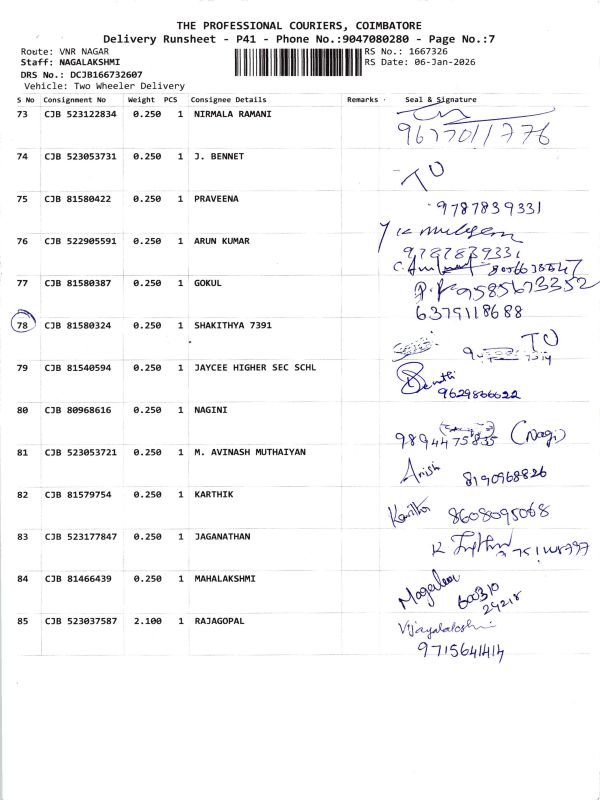 THE PROFESSIONAL COURIERS, COIMBATORE
Delivery Runsheet - P41 - Phone No.:9047080280 - Page No.:7
Route: VNR NAGAR RS No.: 1667326
Staff: NAGALAKSHMI RS Date: 06-Jan-2026
DRS No.: DCJB166732607
Vehicle: Two Wheeler Delivery
S No Consignment No Weight PCS Consignee Details Remarks Seal & Signature
73 CJB 523122834 0.250 1 NIRMALA RAMANI
9677011776
74 CJB 523053731 0.250 1 J. BENNET
75 CJB 81580422 0.250 1 PRAVEENA 9787839331
76 CJB 522905591 0.250 1 ARUN KUMAR
9787839331
77 CJB 81580387 0.250 1 GOKUL 9585673352
6379118688
78 CJB 81580324 0.250 1 SHAKITHYA 7391
79 CJB 81540594 0.250 1 JAYCEE HIGHER SEC SCHL
9629866622
80 CJB 80968616 0.250 1 NAGINI
9894475835 (Nagi)
81 CJB 523053721 0.250 1 M. AVINASH MUTHAIYAN
8190968826
82 CJB 81579754 0.250 1 KARTHIK
8608095068
83 CJB 523177847 0.250 1 JAGANATHAN
84 CJB 81466439 0.250 1 MAHALAKSHMI
85 CJB 523037587 2.100 1 RAJAGOPAL Vijayalakshmi
9715641414